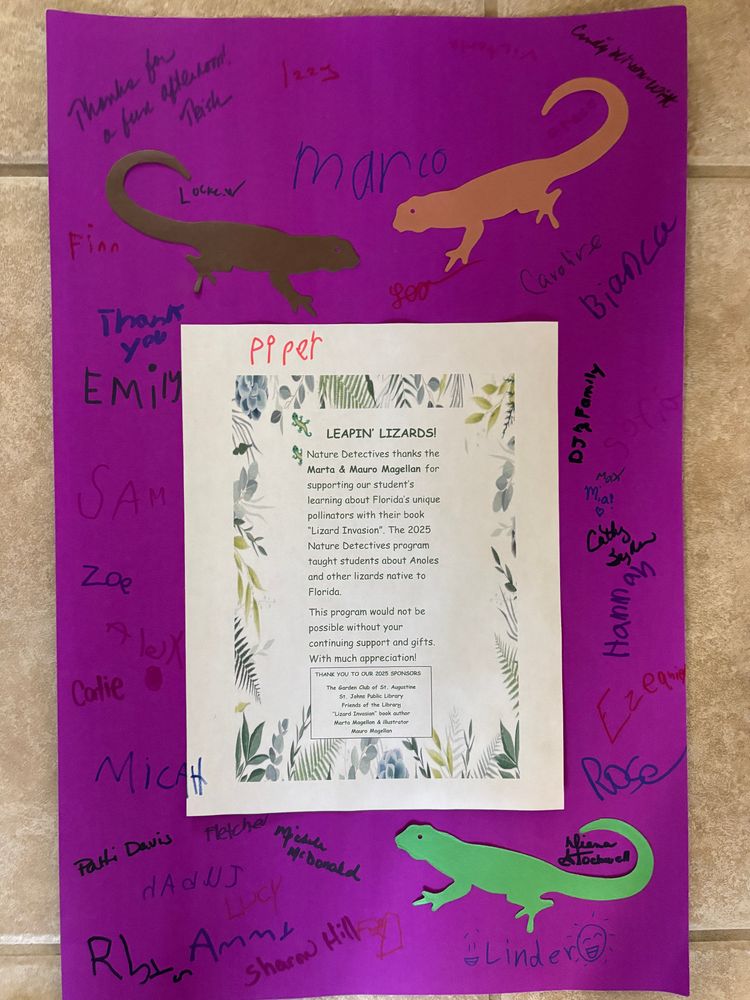 Thanks for
a fun afternoon!
Trish
Izzy
Victoria
Marco
Finn
Leo
Caroline
Bianca
Thank
you
Piper
EMily
DJ's Family
Sofia
SAM
Max
Mia!
Cathy
Zoe
Hannah
Alex
Carlie
MicAH
Rose
LEAPIN' LIZARDS!
Nature Detectives thanks the
Marta & Mauro Magellan for
supporting our student's
learning about Florida's unique
pollinators with their book
"Lizard Invasion". The 2025
Nature Detectives program
taught students about Anoles
and other lizards native to
Florida.
This program would not be
possible without your
continuing support and gifts.
With much appreciation!
THANK YOU TO OUR 2025 SPONSORS
The Garden Club of St. Augustine
St. Johns Public Library
Friends of the Library
"Lizard Invasion" book author
Marta Magellan & illustrator
Mauro Magellan
Patti Davis
Fletcher
Michele
McDonald
Diana
Stockwell
Lucy
Sharon Hill
Linder